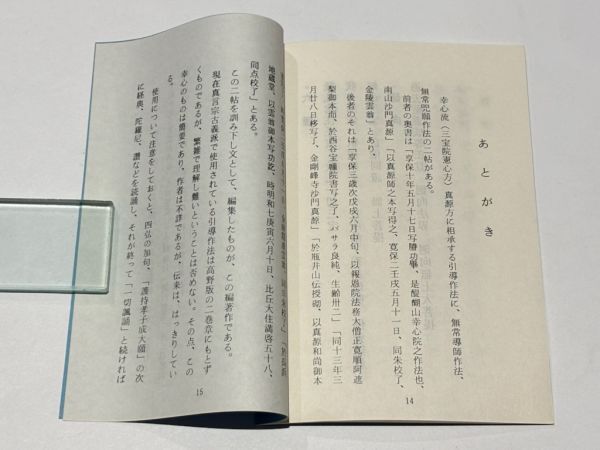 あとがき
幸心流（三宝院憲心方）真源方に相承する引導作法に、無常導師作法、
無常咒願作法の二帖がある。
前者の奥書は「享保十年五月十七日写得功畢、是醍醐山幸心院之作法也、
南山沙門真源」「以真源師之本写得之、寛保二壬戌五月十一日、同朱校了、
金陵雲翁」とあり、
後者のそれは「享保三歳次戊戌六月中旬、以報恩院法務大僧正寛順阿遮
梨御本而、於西谷宝幢院書写之了、バサラ良純、生齢卅二」「同十三年三
月廿八日移写了、金剛峰寺沙門真源」「於瓶井山伝授砌、以真源和尚御本
14
地蔵堂、以雲翁御本写功訖、時明和七庚寅六月十日、比丘大住満啓五十八、
同点校了」とある。
この二帖を訓み下し文として、編集したものが、この編著作である。
現在真言宗古義派で使用されている引導作法は高野版の二巻章にもとず
くものであるが、繁雑で理解し難いということは否めない。その点、この
幸心のものは簡要であり、作者は不詳であるが、伝来は、はっきりしてい
る。
使用について注意をしておくと、四弘の加句、「護持孝子成大願」の次
に経典、陀羅尼、讃などを読誦し、それが終って「一切諷誦」と続ければ
15